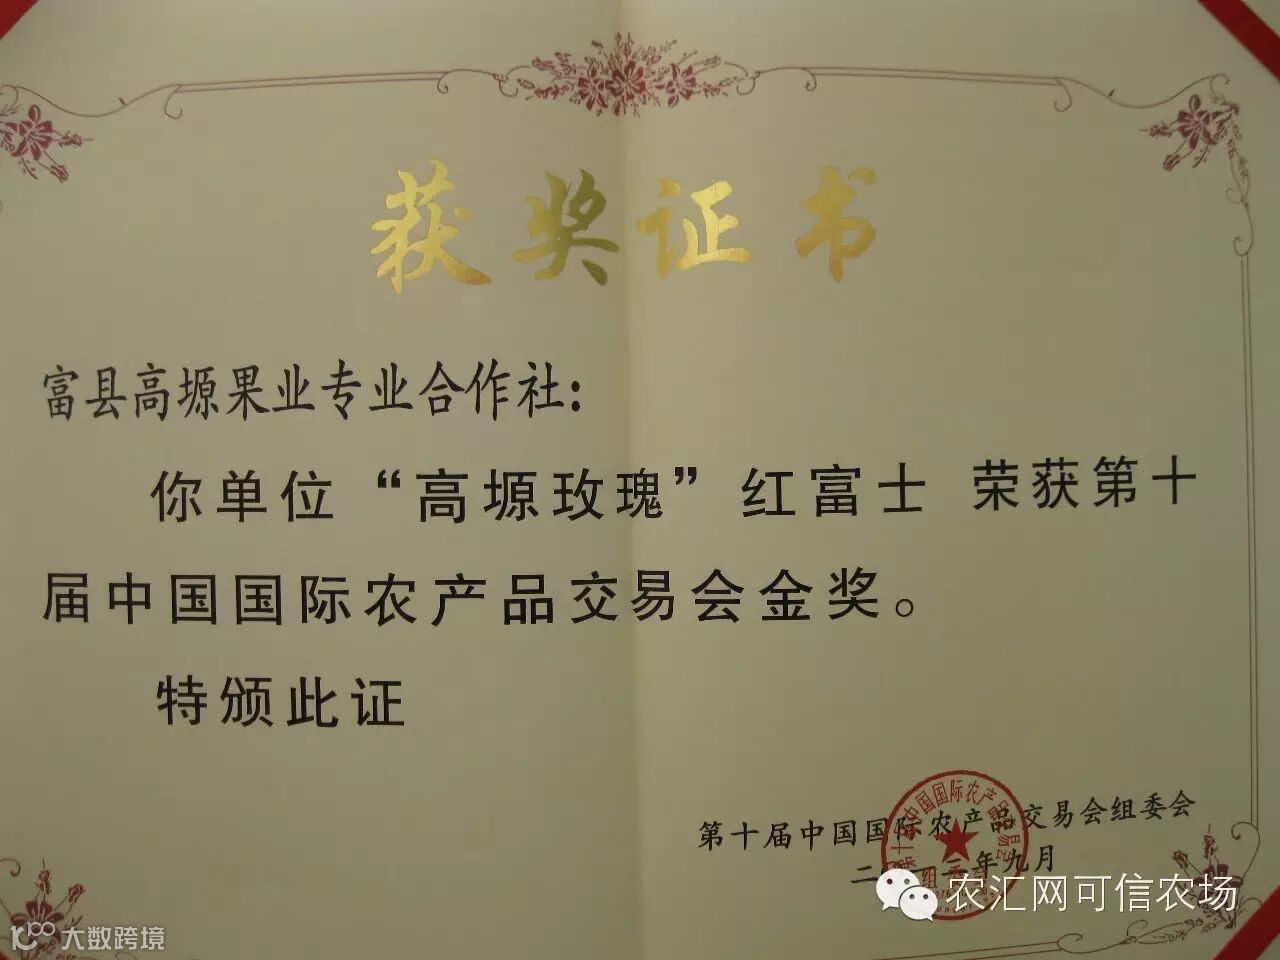 获奖证书
富县高塬果业专业合作社：
你单位“高塬玫瑰”红富士 荣获第十
届中国国际农产品交易会金奖。
特颁此证
第十届中国国际农产品交易会组委会
年九月
第十届中国国际农产品交易会
农汇网可信农场
大数跨境